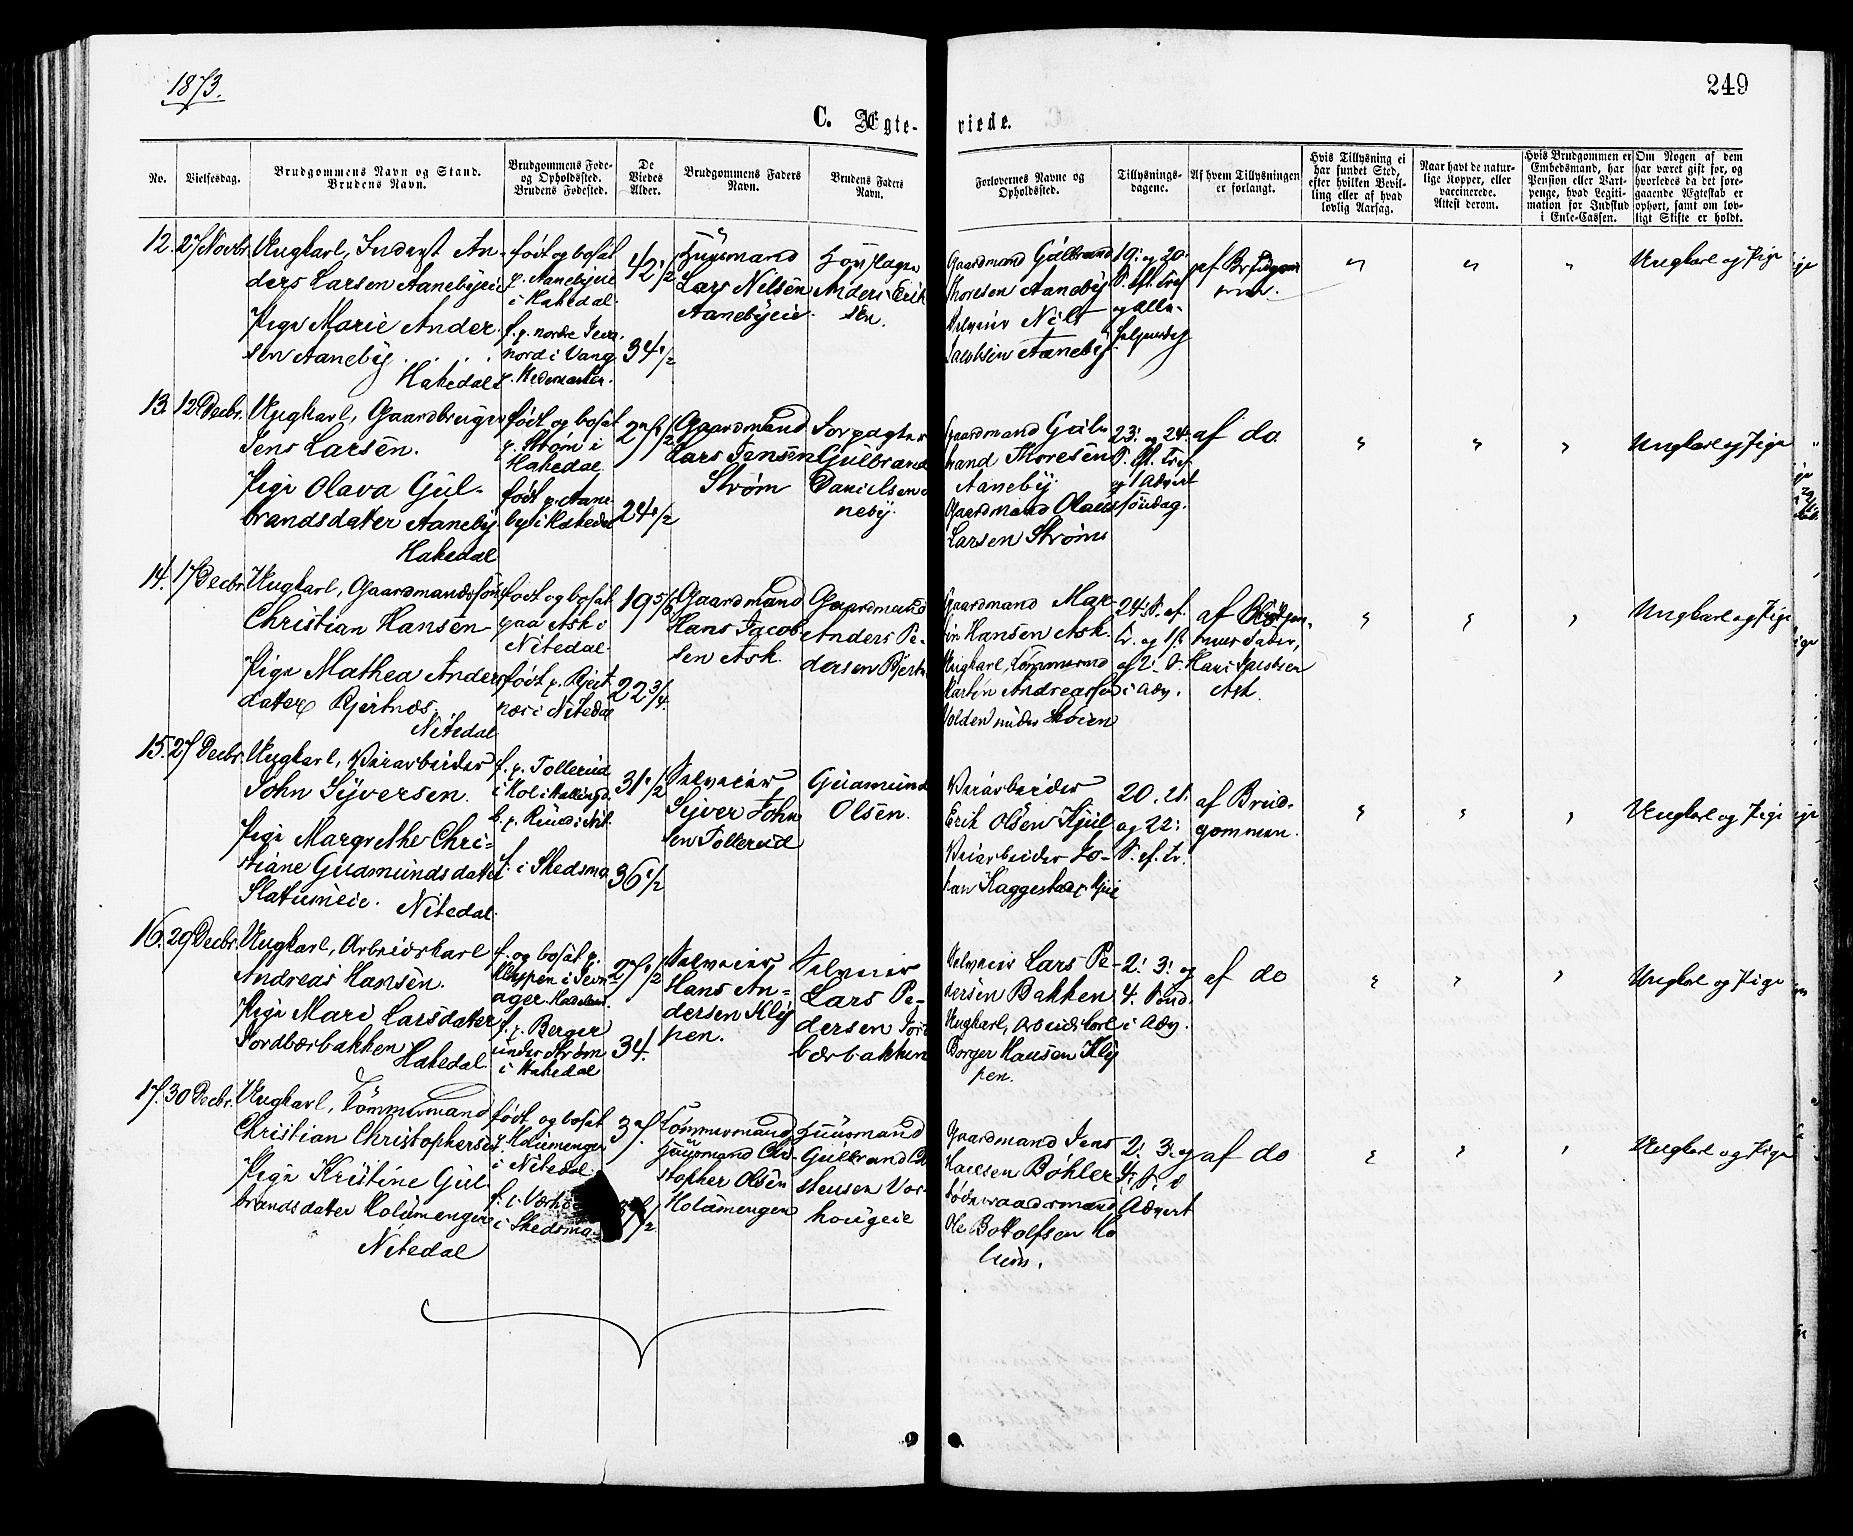 1873.
249
C. Ægte-
viede.
No.
Vielsesdag.
Brudgommens Navn og Stand.
Brudens Navn.
Brudgommens Føde-
og Opholdssted.
Brudens Fødested.
De
Viedes
Alder.
Brudgommens Faders
Navn.
Brudens Faders
Navn.
Forlovernes Navne og
Opholdssted.
Tillysnings-
dagene.
Af hvem Tillysningen
er forlangt.
Hvis Tillysning ei
har fundet Sted,
efter hvilken Bevil-
ling eller af hvad
lovlig Aarsag.
Naar havt de natur-
lige Kopper, eller
vaccinerede.
Attest derom.
Hvis Brudgommen er
Embedsmand, har
Pension eller Vart-
penge, hvad Legiti-
mation for Indskud
i Enke-Cassen.
Om Nogen af dem
har været gift før, og
hvorledes da det fore-
gaaende Ægteskab er
ophørt, samt om lov-
ligt Skifte er holdt.
12. 27 Novbr.
Ungkarl, Inderst An-
ders Larsen Aanebyeie
Pige Marie Ander-
sen Aaneby
Hakedal
født og bosat
p. Aanebyeie
i Hakedal.
f. p. nordre
nord i Vang
p. Hedemarken.
42 1/2
34 1/2
Huusmand
Lars Nilsen
Aanebyeie
Anders Erik
sen.
Gaardmand Gulbrand
Thoresen Aaneby
Selveier Nils
Jacobsen Aaneby
19: og 20
S. eft. Tref
og Alle-
helgensdag
af Brudgom
men.
Ungkarl og Pige
13. 12 Decbr.
Ungkarl, Gaardbruger
Jens Larsen.
Pige Olava Gul-
brandsdater Aaneby
Hakedal
født og bosat
p. Strøm i
Hakedal
født p. Aane-
by i Hakedal
27 1/2
24 1/2
Gaardmand
Lars Jensen
Strøm
Forpagter
Gulbrand
Danielsen
neby.
Gaardmand Gul-
brand Thoresen
Aaneby
Gaardmand Olaus
Larsen Strøm
23: og 24
S. eft. Tref
og 1 Advent
søndag.
af do
Ungkarl og Pige
14. 17 Decbr.
Ungkarl, Gaardmandssøn
Christian Hansen
Pige Mathea Anders
dater Bjertnæs.
Nitedal
født og bosat
paa Ask i
Nitedal
født p. Bjert
næs i Nitedal
19 5/6
22 3/4
Gaardmand
Hans Jacob-
sen Ask.
Gaardmand
Anders Pe-
dersen Bjertn
Gaardmand Mar-
tin Hansen Ask.
Ungkarl, Tømmermd
Martin Andreassen
Volden under
24: S. ef.
Tr. og 1ste
og 2: S.
i Adv.
af Brudgom-
mens Fader,
Hans Jacobsen
Ask.
Ungkarl og Pige
15. 27 Decbr.
Ungkarl, Veiarbeider
John Syversen.
Pige Margrethe Chri-
stiane Gudmundsdater
Slatumeie. Nitedal.
f. p. Tollerud
i Hol i Hallingd
b. p. Ruud i Nit.
f. i Skedsmo
31 1/2
36 1/2
Selveier
Syver John
sen Tollerud
Gudmund
Olsen.
Veiarbeider
Erik Olsen Kjul
Veiarbeider Jo-
han Haggestad p. Kjul
20. 21.
og 22:
S. ef. Tr.
af Brud-
gommen.
Ungkarl og Pige
16. 29 Decbr.
Ungkarl, Arbeidskarl
Andreas Hansen.
Pige Mari Larsdater
Jordbærbakken
Hakedal.
f. og bosat p.
Klypen i Jevn-
ager. Hadeland.
f. p. Berger
under Strøm
i Hakedal
27 1/2
34.
Selveier
Hans An-
dersen Kly
pen.
Selveier
Lars Pe-
dersen Jord
bærbakken
Selveier Lars Pe-
dersen Bakken
Ungkarl, Arbeidskarl
Borger Hansen Kly
pen.
2: 3: og
4. Sønd.
i Adv.
af do
Ungkarl og Pige
17. 30 Decbr.
Ungkarl, Tømmermand
Christian Christophersen
Pige Kristine Gul-
brandsdater Holumenger
Nitedal
født og bosat
p. Holumenger
i Nitedal.
i Skedsmo
37.
Tømmermand
Huusmand Chri-
stopher Olsen
Holumengen
Huusmand
Gulbrand Chri
stensen Var-
hougeie
Gaardmand Jens
Hansen Bøhler
Ole Bottolfsen Ho
lum.
2: 3: og
4: S. i
Advent
af do
Ungkarl og Pige